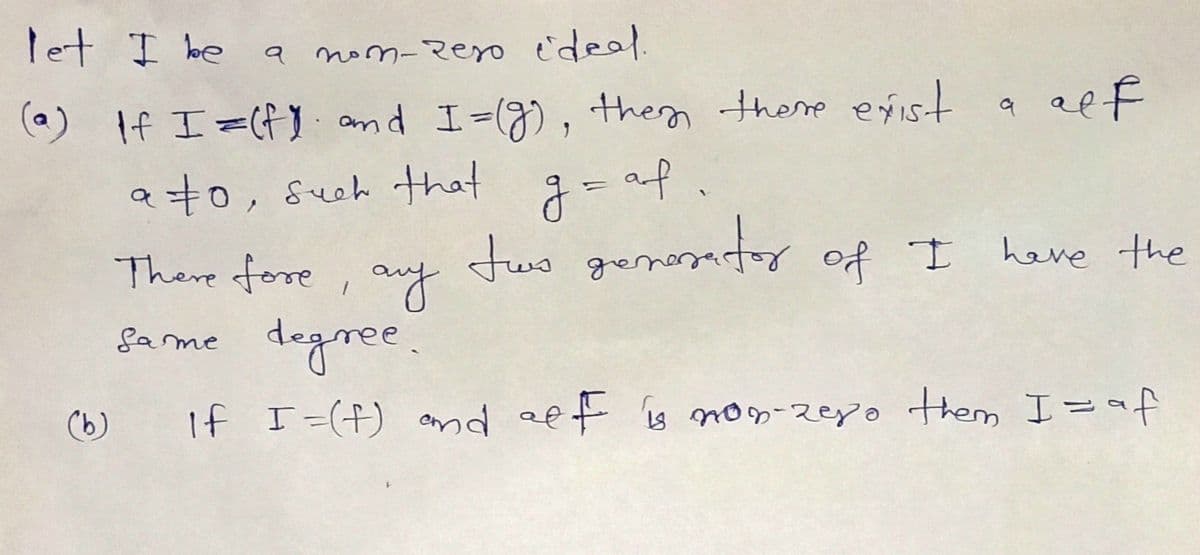 let I be a non-zero ideal.
(a) If I=(f). and I=(g), then there exist a a∈F
a≠0, such that g=af.
Therefore, any two generator of I have the
same degree.
(b) If I=(f) and a∈F is non-zero then I=af